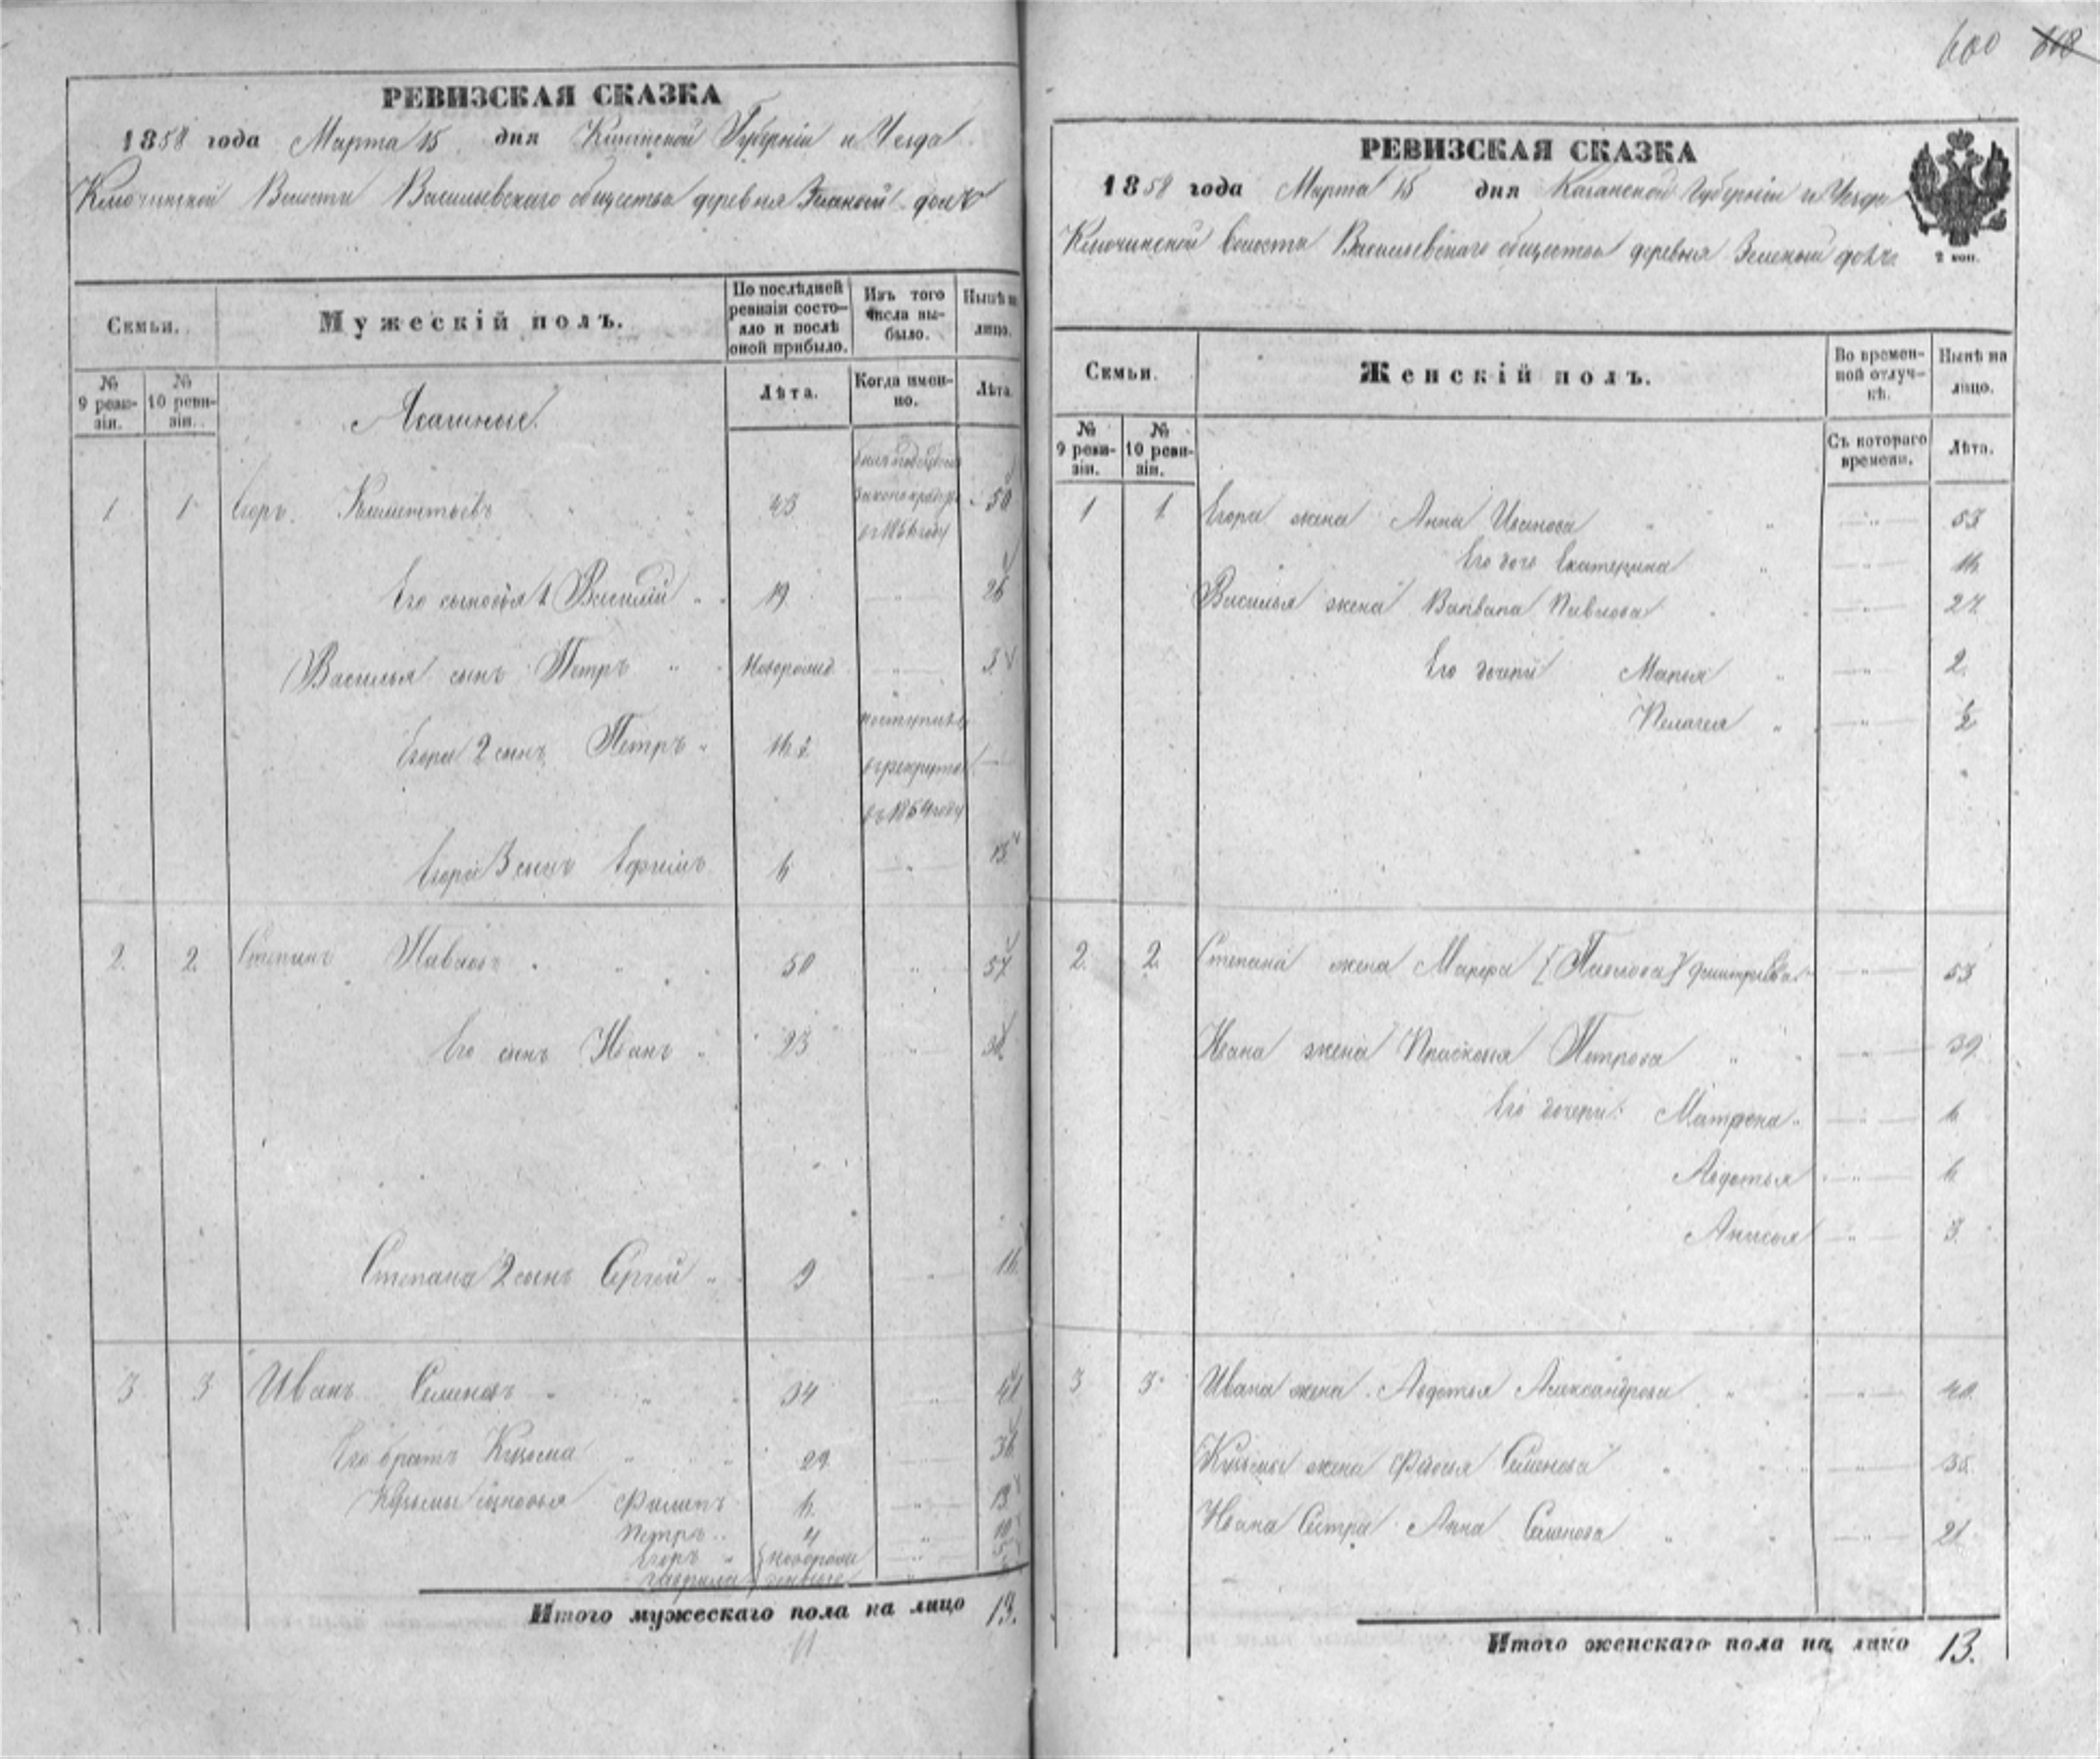 600 618
РЕВИЗСКАЯ СКАЗКА
1858 года Марта 15 дня Казанской Губерніи и Уезда
Ключинской Волости Васильевскаго общества деревня Зеленый долъ
Семьи.
Мужескій полъ.
По послѣдней ревизіи состояло и послѣ оной прибыло.
Изъ того числа выбыло.
Нынѣ на лицо.
№ 9 ревизіи.
№ 10 ревизіи.
Лѣта.
Когда именно.
Лѣта.
Ясашные.
1 1 Егоръ 43 въ 1856 году 50
Его сыновья 1 Василій 19 26
Василья сынъ Петръ Новорожд 3
Егора 2 сынъ Петръ 16 поступилъ в рекруты въ 1854 году
Егора 3 сынъ Ефимъ 6 13
2. 2. Степанъ Павловъ 50 57
Его сынъ Иванъ 23 30
Степана 2 сынъ Сергей 9 16
3 3 Иванъ Семеновъ 34 41
Его братъ Кузьма 29 36
Кузьмы сыновья Филипъ 6 13
Петръ 4
Егоръ новорожденные 5
Гаврила
Итого мужескаго пола на лицо 13.
11
РЕВИЗСКАЯ СКАЗКА
1858 года Марта 15 дня Казанской Губерніи и Уезда
Ключинской волости Васильевскаго общества деревня Зеленый долъ
2 коп.
Семьи.
Женскій полъ.
Во временной отлучкѣ.
Нынѣ на лицо.
№ 9 ревизіи.
№ 10 ревизіи.
Съ котораго времени.
Лѣта.
1 1 Егора жена Анна Иванова 53
Его дочь Екатерина 16
Василья жена Варвара Павлова 27
Его дочери Марья 2
Пелагея ½
2. 2. Степана жена Марфа [Павлова] Дмитріева 53
Ивана жена Прасковья Петрова 39
Его дочери Матрена 6
Авдотья
Анисья 3
3 3 Ивана жена Авдотья Александрова 40
Кузьмы жена Семенова 35
Ивана Сестра Анна Семенова 21
Итого женскаго пола на лицо 13.